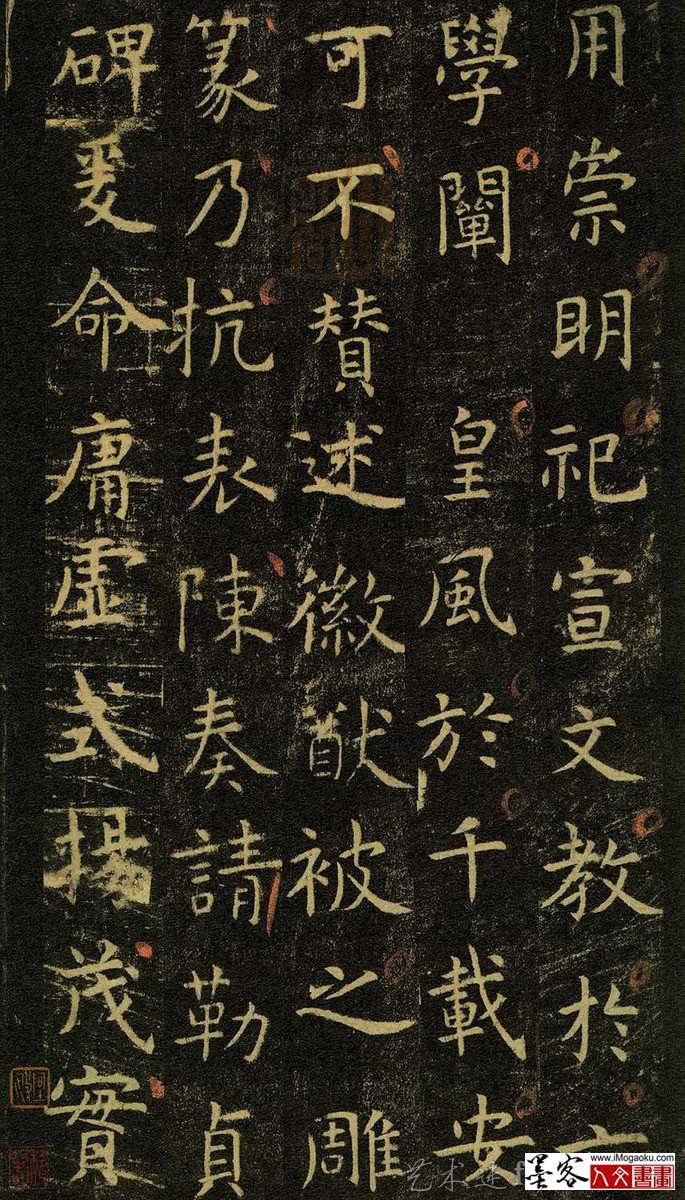 用崇明祀宣文教扵六
學闡皇風於千載安
可不賛述徽猷被之雕
篆乃抗表陳奏請勒貞
碑爰命庸虛式揚茂實
www.iMogaoku.com
墨客人文書畫